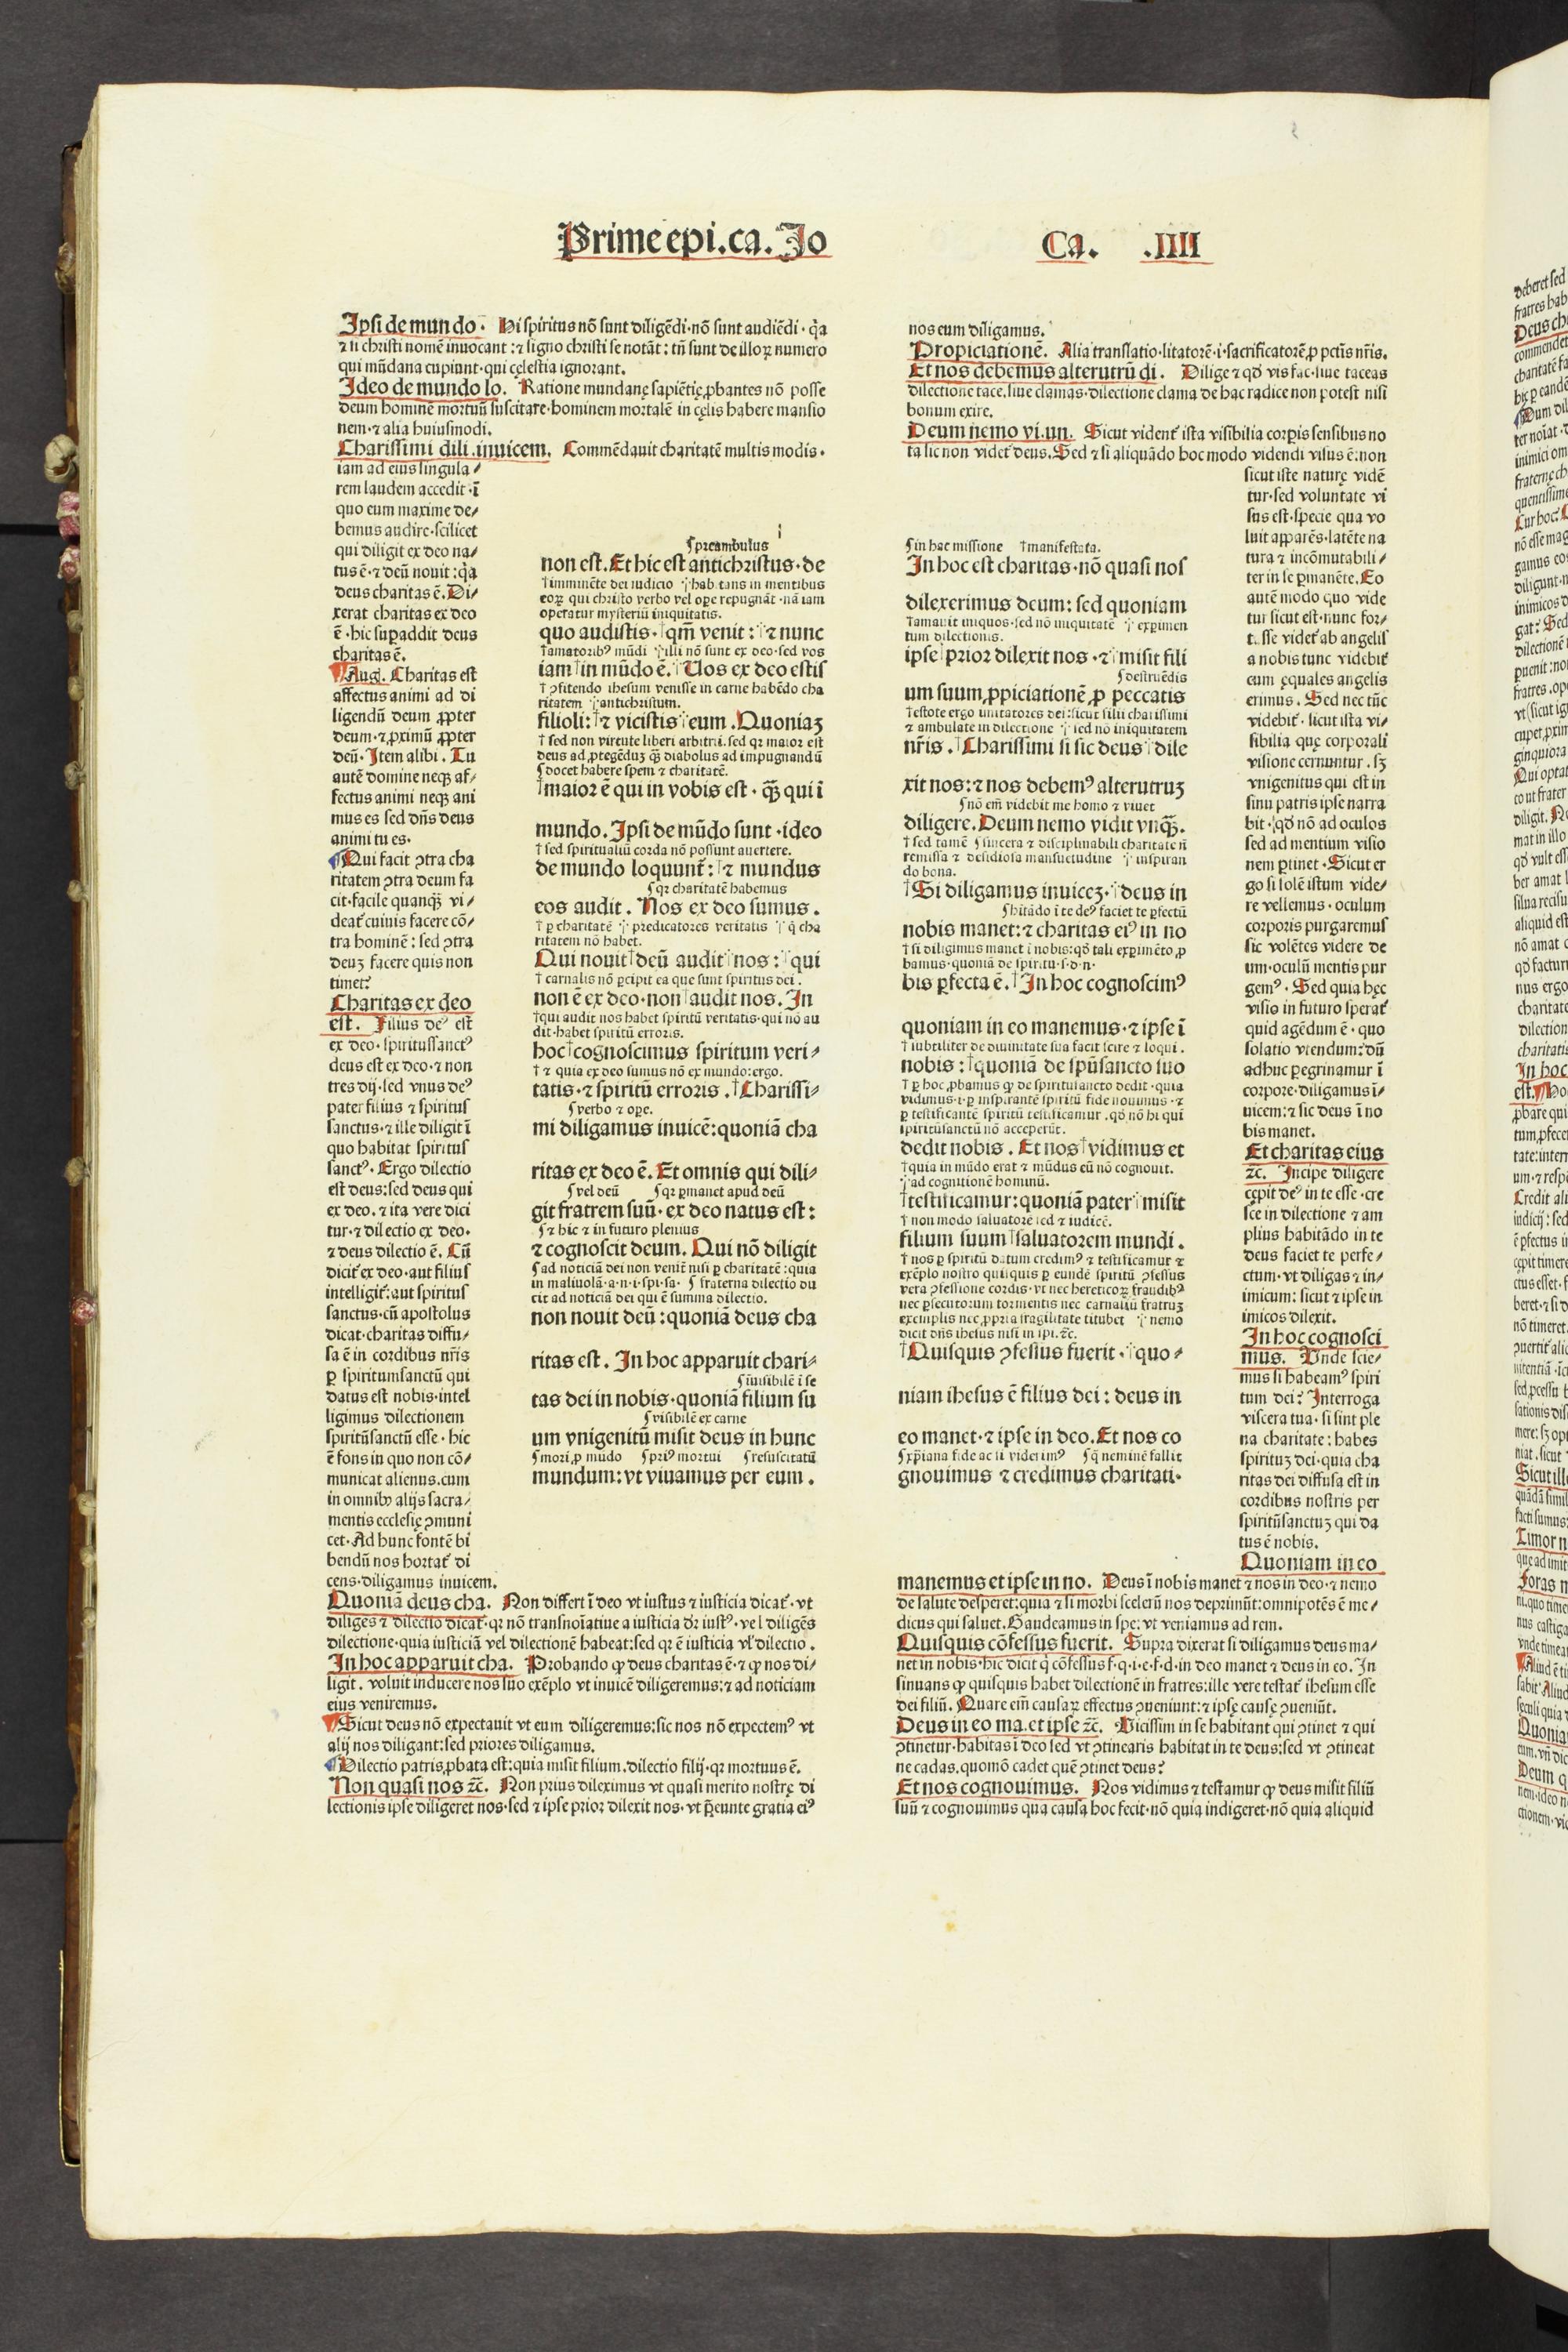 Prime epi.ca. Jo
Ca. .IIII
Ipsi de mundo. Hi spiritus nō sunt diligēdi·nō sunt audiēdi·q̇a
⁊ ii christi nomē inuocant:⁊ signo christi se notāt:tn̄ sunt de illoꝝ numero
qui mūdana cupiunt·qui cęlestia ignorant.
Ideo de mundo lo. Ratione mundanę sapiētię ꝓbantes nō posse
deum hominē mortuū suscitare·hominem mortalē in cęlis habere mansio
nem·⁊ alia huiusmodi.
Charissimi dili.inuicem. Commēdauit charitatē multis modis·
iam ad eius singula/
rem laudem accedit·ī
quo eum maxime de/
bemus audire·scilicet
qui diligit ex deo na/
tus ē·⁊ deū nouit:q̇a
deus charitas ē. Di/
xerat charitas ex deo
ē·hic supaddit deus
charitas ē.
Aug. Charitas est
affectus animi ad di
ligendū deum ꝓpter
deum·⁊ ꝓximū ꝓpter
deū·Item alibi. Tu
autē domine neqꝫ af/
fectus animi neqꝫ ani
mus es sed dn̄s deus
animi tu es.
Qui facit ꝯtra cha
ritatem ꝯtra deum fa
cit·facile quanqꝫ vi/
deat᷑ cuiuis facere cō/
tra hominē: sed ꝯtra
deuꝫ facere quis non
timet?
Charitas ex deo
est. Filius deꝰ est
ex deo·spiritussanctꝰ
deus est ex deo·⁊ non
tres dij·sed vnus deꝰ
pater filius ⁊ spiritus
sanctus·⁊ ille diligit ī
quo habitat spiritus
sanctꝰ·Ergo dilectio
est deus:sed deus qui
ex deo.⁊ ita vere dici
tur·⁊ dilectio ex deo·
⁊ deus dilectio ē. Cū
dicit᷑ ex deo·aut filius
intelligit᷑:aut spiritus
sanctus·cū apostolus
dicat·charitas diffu/
sa ē in cordibus nr̄is
ꝑ spiritumsanctū qui
datus est nobis·intel
ligimus dilectionem
spiritūsanctū esse·hic
ē fons in quo non cō/
municat alienus.cum
in omnibꝰ alijs sacra/
mentis ecclesię ꝯmuni
cet·Ad hunc fontē bi
bendū nos hortat᷑ di
cens·diligamus inuicem.
Quoniā deus cha. Non differt ī deo vt iustus ⁊ iusticia dicat᷑·vt
diliges ⁊ dilectio dicat᷑·qꝛ nō transnoīatiue a iusticia dr̄ iustꝰ·vel diligēs
dilectione·quia iusticiā vel dilectionē habeat:sed qꝛ ē iusticia vl̓ dilectio.
In hoc apparuit cha. Probando ꝙ deus charitas ē·⁊ ꝙ nos di/
ligit. voluit inducere nos suo exēplo vt inuicē diligeremus:⁊ ad noticiam
eius veniremus.
Sicut deus nō expectauit vt eum diligeremus:sic nos nō expectemꝰ vt
alij nos diligant:sed priores diligamus.
Dilectio patris ꝓbata est:quia misit filium.dilectio filij·qꝛ mortuus ē.
Non quasi nos ⁊c̄. Non prius dileximus vt quasi merito nostrę di
lectionis ipse diligeret nos·sed ⁊ ipse prior dilexit nos·vt p̄eunte gratia eiꝰ
ʃ preambulus
non est. Et hic est antichristus·de
†imminēte dei iudicio †habitans in mentibus
eoꝝ qui christo verbo vel oꝑe repugnāt·nā iam
operatur mysteriū iniquitatis.
quo audistis·†qm̄ venit:†⁊ nunc
†amatoribꝰ mūdi †illi nō sunt ex deo·sed vos
iam†in mūdo ē.†Uos ex deo estis
†ꝯfitendo ihesum venisse in carne habēdo cha
ritatem †antichristum.
filioli:†⁊ vicistis†eum. Quoniaꝫ
†sed non virtute liberi arbitrii.sed qꝛ maior est
deus ad ꝓtegēduꝫ qꝫ̄ diabolus ad impugnandū
ʃdocet habere spem ⁊ charitatē.
†maior ē qui in vobis est·qꝫ̄ qui ī
mundo. Ipsi de mūdo sunt·ideo
†sed spiritualiū corda nō possunt auertere.
de mundo loquunt᷑:†⁊ mundus
ʃqꝛ charitatē habemus
eos audit. Nos ex deo sumus.
†ꝑ charitatē †predicatores veritatis †q̇ cha
ritatem nō habet.
Qui nouit†deū audit†nos:†qui
†carnalis nō ꝑcipit ea que sunt spiritus dei.
non ē ex deo·non†audit nos. In
†qui audit nos habet spiritū veritatis·qui nō au
dit·habet spiritū erroris.
hoc†cognoscimus spiritum veri/
†⁊ quia ex deo sumus nō ex mundo:ergo.
tatis·⁊ spiritū erroris.†Charissi/
ʃverbo ⁊ oꝑe.
mi diligamus inuicē:quoniā cha
ritas ex deo ē. Et omnis qui dili/
ʃvel deū ʃqꝛ ꝑmanet apud deū
git fratrem suū·ex deo natus est:
ʃ⁊ hic ⁊ in futuro plenius
⁊ cognoscit deum. Qui nō diligit
ʃad noticiā dei non veniē nisi ꝑ charitatē:quia
in maliuolā·a·n·i·spi·sa· ʃfraterna dilectio du
cit ad noticiā dei qui ē summa dilectio.
non nouit deū:quoniā deus cha
ritas est. In hoc apparuit chari/
ʃiuisibilē ī se
tas dei in nobis·quoniā filium su
ʃvisibilē ex carne
um vnigenitū misit deus in hunc
ʃmori ꝓ mūdo ʃpriꝰ mortui ʃresuscitatū
mundum:vt viuamus per eum.
nos eum diligamus.
Propiciationē. Alia translatio·litatorē·i·sacrificatorē ꝓ pctīs nr̄is.
Et nos debemus alterutrū di. Dilige ⁊ qd̓ vis fac·siue taceas
dilectione tace.siue clamas·dilectione clama de hac radice non potest nisi
bonum exire.
Deum nemo vi.un. Sicut vident᷑ ista visibilia corꝑis sensibus no
ta sic non videt᷑ deus. Sed ⁊ si aliquādo hoc modo videndi visus ē:non
sicut iste naturę vidē
tur·sed voluntate vi
sus est·specie qua vo
luit apparēs·latēte na
tura ⁊ incōmutabili/
ter in se ꝑmanēte. Eo
autē modo quo vide
tur sicut est·nunc for/
t.sse videt᷑ ab angelis
a nobis tunc videbit᷑
cum ęquales angelis
erimus. Sed nec tūc
videbit᷑·sicut ista vi/
sibilia quę corporali
visione cernuntur. sꝫ
vnigenitus qui est in
sinu patris ipse narra
bit·qd̓ nō ad oculos
sed ad mentium visio
nem ꝑtinet·Sicut er
go si solē istum vide/
re vellemus·oculum
corporis purgaremus
sic volētes videre de
um·oculū mentis pur
gemꝰ·Sed quia hęc
visio in futuro sperat᷑
quid agēdum ē·quo
solatio vtendum:dū
adhuc ꝑegrinamur ī
corpore·diligamus ī/
uicem:⁊ sic deus ī no
bis manet.
Et charitas eius
⁊c̄. Incipe diligere
cępit deꝰ in te esse·cre
sce in dilectione ⁊ am
plius habitādo in te
deus faciet te perfe/
ctum·vt diligas ⁊ in/
imicum:sicut ⁊ ipse in
imicos dilexit.
In hoc cognosci
mus. Unde scie/
mus si habeamꝰ spiri
tum dei? Interroga
viscera tua·si sint ple
na charitate:habes
spirituꝫ dei·quia cha
ritas dei diffusa est in
cordibus nostris per
spiritūsanctuꝫ qui da
tus ē nobis.
Quoniam in eo
manemus et ipse in no. Deus ī nobis manet ⁊ nos in deo·⁊ nemo
de salute desperet:quia ⁊ si morbi scelerū nos deprimūt:omnipotēs ē me/
dicus qui saluet. Gaudeamus in spe:vt veniamus ad rem.
Quisquis cōfessus fuerit. Supra dixerat si diligamus deus ma/
net in nobis·hic dicit q̇ cōfessus f·q·i·e·f·d·in deo manet ⁊ deus in eo. In
sinuans ꝙ quisquis habet dilectionē in fratres:ille vere testat᷑ ihesum esse
dei filiū. Quare em̄ causaꝝ effectus ꝯueniunt:⁊ ipsę causę ꝯueniūt.
Deus in eo ma.et ipse ⁊c̄. Vicissim in se habitant qui ꝯtinet ⁊ qui
ꝯtinetur·habitas ī deo sed vt ꝯtinearis habitat in te deus:sed vt ꝯtineat
ne cadas.quomō cadet quē ꝯtinet deus?
Et nos cognouimus. Nos vidimus ⁊ testamur ꝙ deus misit filiū
suū ⁊ cognouimus qua causa hoc fecit·nō quia indigeret·nō quia aliquid
ʃin hac missione †manifestata.
In hoc est charitas·nō quasi nos
dilexerimus deum: sed quoniam
†amauit iniquos·sed nō iniquitatē †exꝑimen
tum dilectionis.
ipse†prior dilexit nos·⁊†misit fili
ʃdestruēdis
um suum ꝓpiciationē ꝓ peccatis
†estote ergo imitatores dei:sicut filii charissimi
⁊ ambulate in dilectione †sed nō iniquitatem
nr̄is.†Charissimi si sic deus†dile
xit nos:⁊ nos debemꝰ alterutruꝫ
ʃnō em̄ videbit me homo ⁊ viuet
diligere. Deum nemo vidit vnqꝫ̄.
†sed tamē ʃsincera ⁊ disciplinabili charitate n̄
remissa ⁊ desidiosa mansuetudine †inspiran
do bona.
†Si diligamus inuiceꝫ·†deus in
ʃhitādo ī te deꝰ faciet te ꝑfectū
nobis manet:⁊ charitas eiꝰ in no
†si diligimus manet ī nobis:qd̓ tali exꝑimēto ꝓ
bamus·quoniā de spiritu·s·d·n·
bis ꝑfecta ē.†In hoc cognoscimꝰ
quoniam in eo manemus·⁊ ipse ī
†subtiliter de diuinitate sua facit scire ⁊ loqui.
nobis:†quoniā de spūsancto suo
†ꝑ hoc ꝓbamus ꝙ de spiritusancto dedit·quia
vidimus·i·ꝑ inspirantē spiritū fide nouimus·⁊
ꝑ testificantē spiritū testificamur.qd̓ nō hi qui
spiritūsanctū nō acceperūt.
dedit nobis. Et nos†vidimus et
†quia in mūdo erat ⁊ mūdus eū nō cognouit.
†ad cognitionē hominū.
†testificamur:quoniā pater†misit
†non modo saluatorē sed ⁊ iudicē.
filium suum†saluatorem mundi.
†nos ꝑ spiritū datum credimꝰ ⁊ testificamur ⁊
exēplo nostro quisquis ꝑ eundē spiritū ꝯfessus
vera ꝯfessione cordis·vt nec hereticoꝝ fraudibꝰ
nec ꝑsecutorum tormentis nec carnaliū fratruꝫ
exemplis nec ꝓpria fragilitate titubet †nemo
dicit dn̄s ihesus nisi in spi.⁊c̄.
†Quisquis ꝯfessus fuerit·†quo/
niam ihesus ē filius dei: deus in
eo manet·⁊ ipse in deo. Et nos co
ʃxp̄iana fide ac si viderimꝰ ʃq̇ neminē fallit
gnouimus ⁊ credimus charitati·